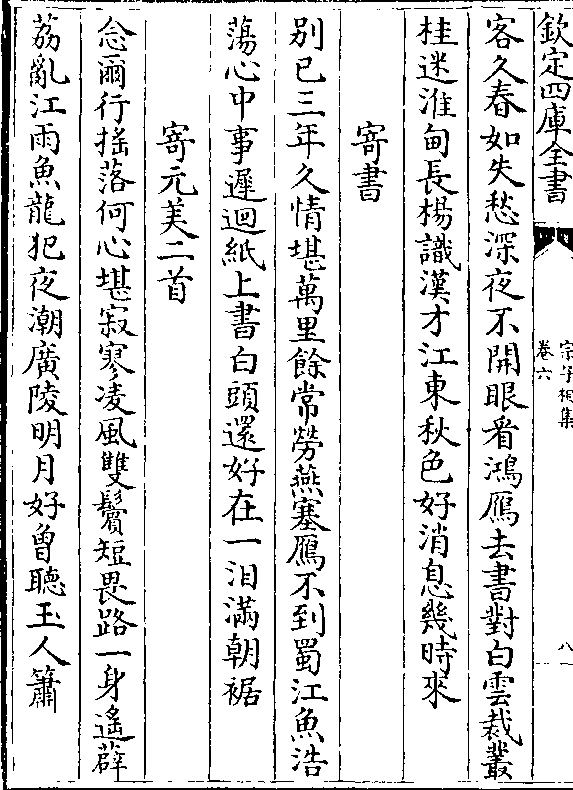 欽定四庫全書
宗子相集
卷六
八
客久春如失愁深夜不開眼看鴻鴈去書對白雲裁叢
桂迷淮甸長楊識漢才江東秋色好消息幾時來
寄書
别已三年久情堪萬里餘常勞燕塞鴈不到蜀江魚浩
蕩心中事遲迴紙上書白頭還好在一淚滿朝裾
寄元美二首
念爾行揺落何心堪寂寥凌風雙鬢短畏路一身遙薜
荔亂江雨魚龍犯夜潮廣陵明月好曾聽玉人簫